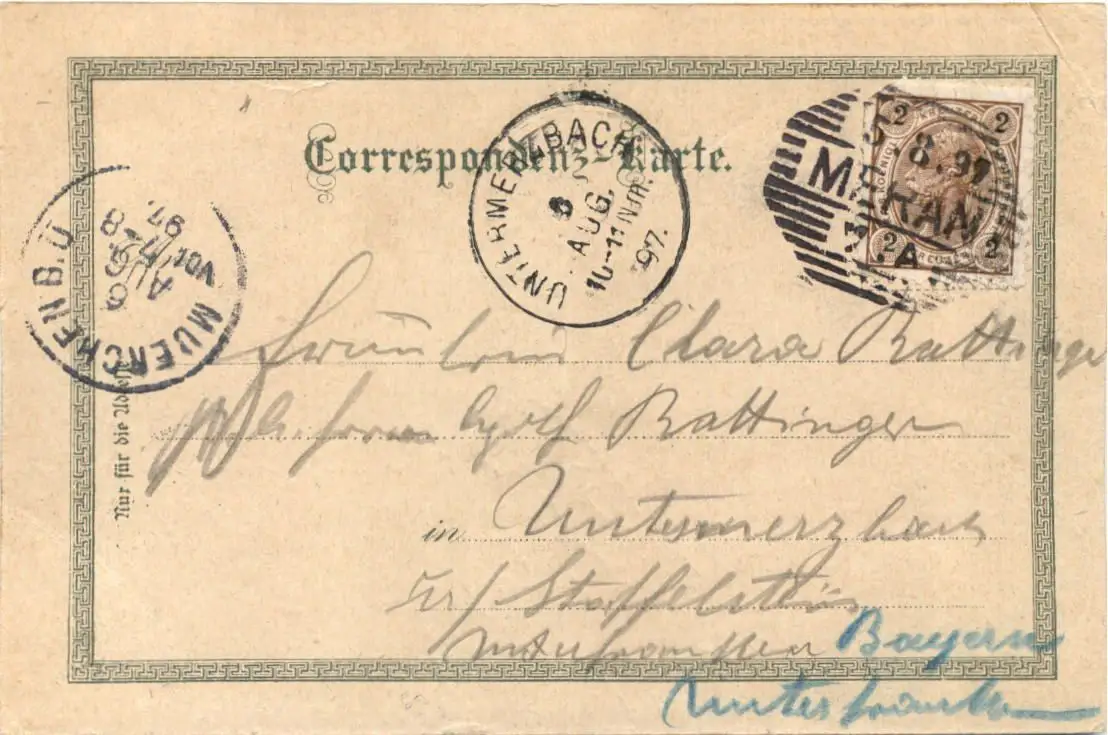 Correspondenz-Karte.
UNTERMERZBACH
8 AUG.
10-11 NM.
97.
2 2
8.97
2 2
MUENCHEN B.U
6 AUG
VOR. 7-8
97.
Nur für die Adresse
Fräulein Clara Battinger
Battinger
in Untermerzbach
Staffelstein
Bayern
Unterfranken